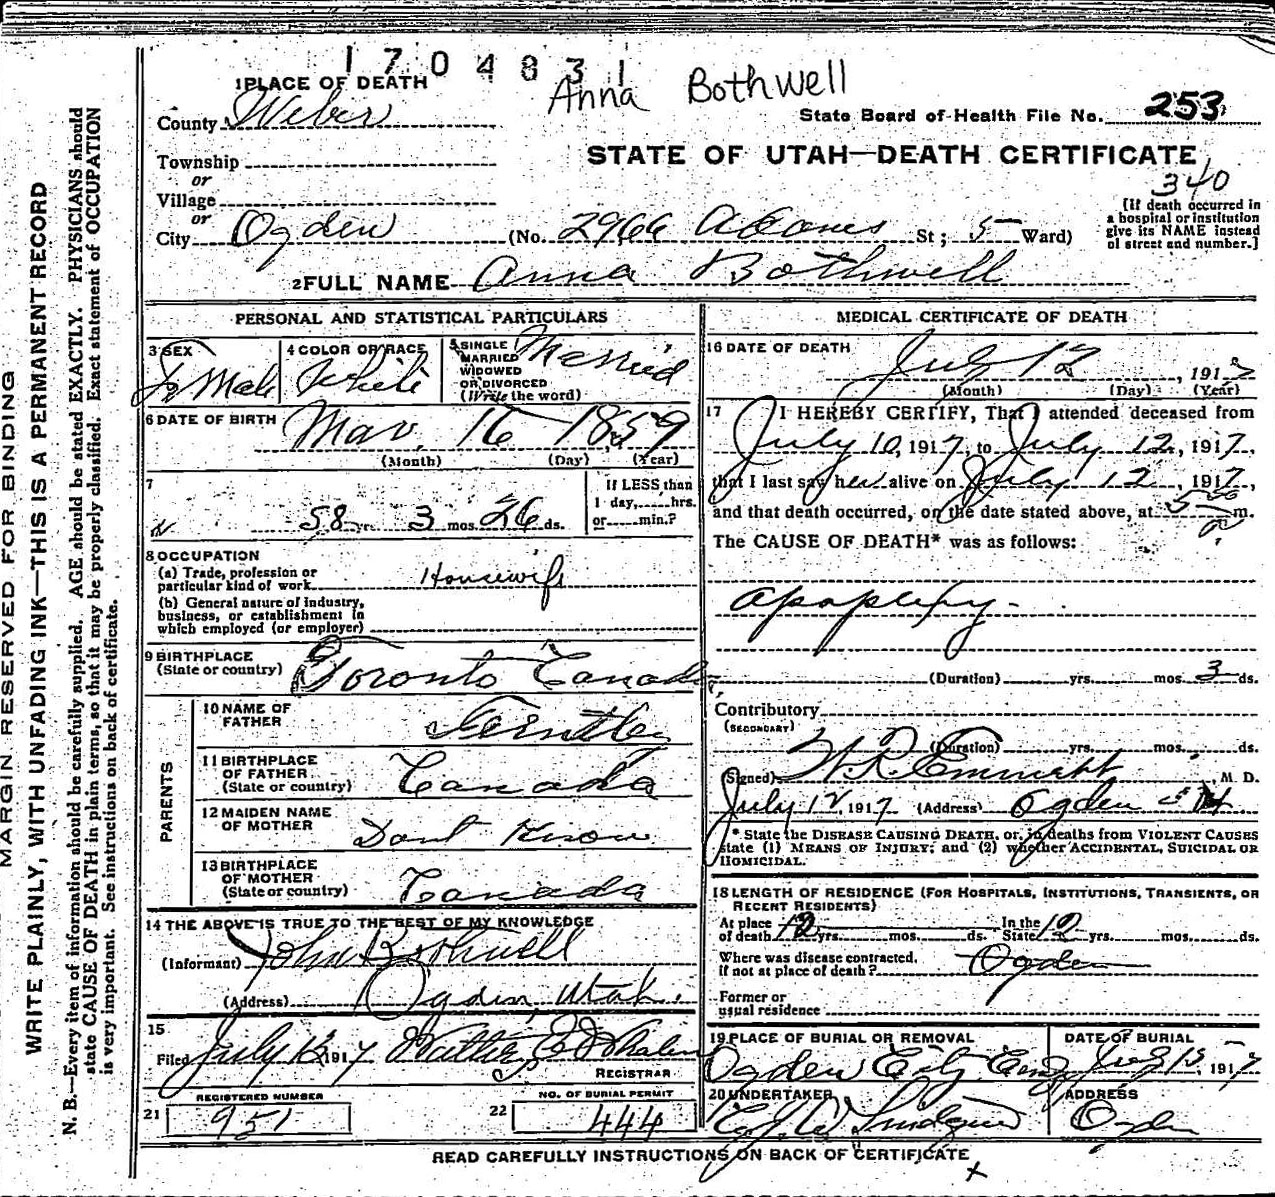 1704831
Anna Bothwell
1 PLACE OF DEATH
County Weber
State Board of Health File No. 253
Township
STATE OF UTAH—DEATH CERTIFICATE
or
340
Village
or
City Ogden (No. 2966 Adams St; 5 Ward)
[If death occurred in
a hospital or institution
give its NAME instead
of street and number.]
2 FULL NAME Anna Bothwell
PERSONAL AND STATISTICAL PARTICULARS
3 SEX
4 COLOR OR RACE
5 SINGLE
MARRIED
WIDOWED
OR DIVORCED
(Write the word)
Married
Female
White
6 DATE OF BIRTH Mar. 16 1859
(Month) (Day) (Year)
7
58 yrs. 3 mos. 26 ds.
If LESS than
1 day, hrs.
or min.?
8 OCCUPATION
(a) Trade, profession or
particular kind of work Housewife
(b) General nature of industry,
business, or establishment in
which employed (or employer)
9 BIRTHPLACE
(State or country) Toronto Canada
PARENTS
10 NAME OF
FATHER
11 BIRTHPLACE
OF FATHER
(State or country) Canada
12 MAIDEN NAME
OF MOTHER Dont Know
13 BIRTHPLACE
OF MOTHER
(State or country) Canada
14 THE ABOVE IS TRUE TO THE BEST OF MY KNOWLEDGE
(Informant) John Bothwell
(Address) Ogden, Utah.
15
Filed July 13 1917 Walter E Whalen
REGISTRAR
REGISTERED NUMBER
21 951
NO. OF BURIAL PERMIT
22 444
MEDICAL CERTIFICATE OF DEATH
16 DATE OF DEATH
July 12, 1917
(Month) (Day) (Year)
17 I HEREBY CERTIFY, That I attended deceased from
July 10, 1917, to July 12, 1917,
that I last saw her alive on July 12, 1917,
and that death occurred, on the date stated above, at 5 m.
The CAUSE OF DEATH* was as follows:
apoplexy.
(Duration) yrs. mos. 3 ds.
Contributory
(SECONDARY)
(Duration) yrs. mos. ds.
(Signed) W.R. Emmett, M. D.
July 12, 1917 (Address) Ogden
* State the DISEASE CAUSING DEATH, or, in deaths from VIOLENT CAUSES
state (1) MEANS OF INJURY; and (2) whether ACCIDENTAL, SUICIDAL OR
HOMICIDAL.
18 LENGTH OF RESIDENCE (FOR HOSPITALS, INSTITUTIONS, TRANSIENTS, OR
RECENT RESIDENTS)
At place
of death 12 yrs. mos. ds.
In the
State 12 yrs. mos. ds.
Where was disease contracted,
if not at place of death? Ogden
Former or
usual residence
19 PLACE OF BURIAL OR REMOVAL
Ogden City Cem
DATE OF BURIAL
July 15, 1917
20 UNDERTAKER
ADDRESS
Ogden
READ CAREFULLY INSTRUCTIONS ON BACK OF CERTIFICATE
MARGIN RESERVED FOR BINDING
WRITE PLAINLY, WITH UNFADING INK—THIS IS A PERMANENT RECORD
N. B.—Every item of information should be carefully supplied. AGE should be stated EXACTLY. PHYSICIANS should
state CAUSE OF DEATH in plain terms, so that it may be properly classified. Exact statement of OCCUPATION
is very important. See instructions on back of certificate.